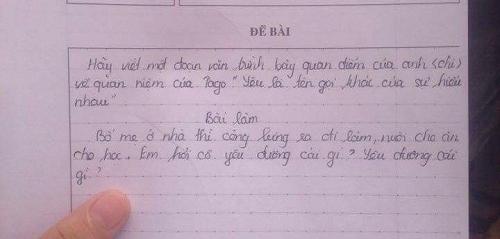 ĐỀ BÀI
Hãy viết một đoạn văn trình bày quan điểm của anh (chị)
về quan niệm của Tago "Yêu là tên gọi khác của sự hiểu
nhau"
Bài làm
Bố mẹ ở nhà thì còng lưng ra đi làm, nuôi cho ăn
cho học. Em hỏi cô yêu đương cái gì? Yêu đương cái
gì?